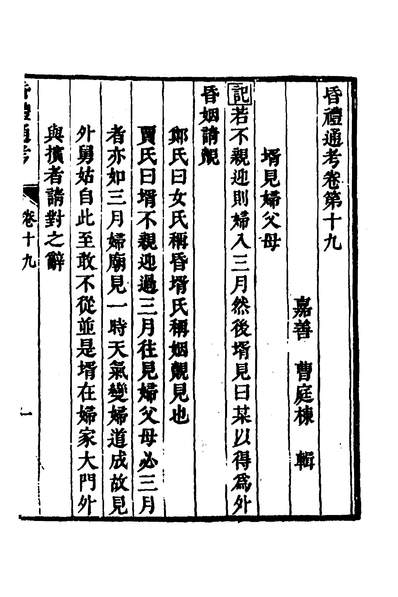 昏禮通考卷第十九
嘉善 曹庭棟 輯
壻見婦父母
記若不親迎則婦入三月然後壻見曰某以得為外
昏姻請覿
鄭氏曰女氏稱昏壻氏稱姻覿見也
賈氏曰壻不親迎過三月往見婦父母必三月
者亦如三月婦廟見一時天氣變婦道成故見
外舅姑自此至敢不從並是壻在婦家大門外
與擯者請對之辭
昏禮通考 卷十九 一